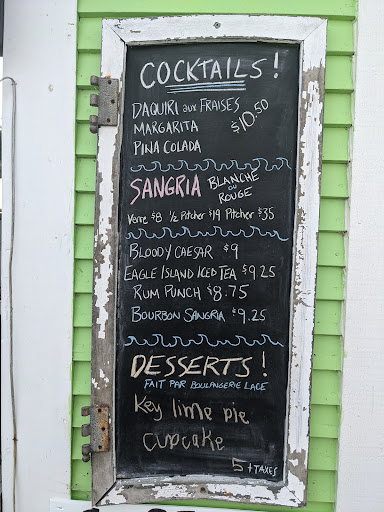 COCKTAILS!
DAQUIRI AUX FRAISES
MARGARITA $10.50
PINA COLADA
SANGRIA BLANCHE
OU
ROUGE
Verre $8 ½ Pitcher $19 Pitcher $35
BLOODY CAESAR $9
EAGLE ISLAND ICED TEA $9.25
RUM PUNCH $8.75
BOURBON SANGRIA $9.25
DESSERTS!
FAIT PAR BOULANGERIE LACE
Key lime pie
cupcake
5 + TAXES